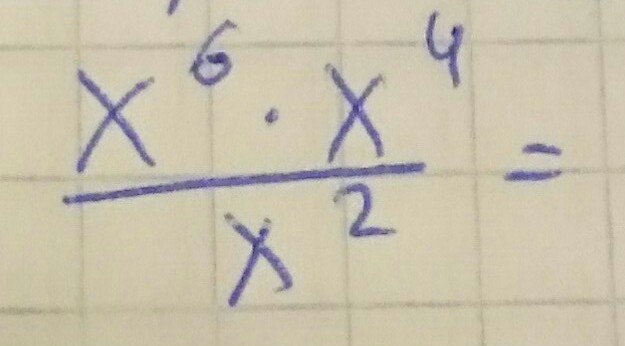 x⁶ · x⁴ =
x²